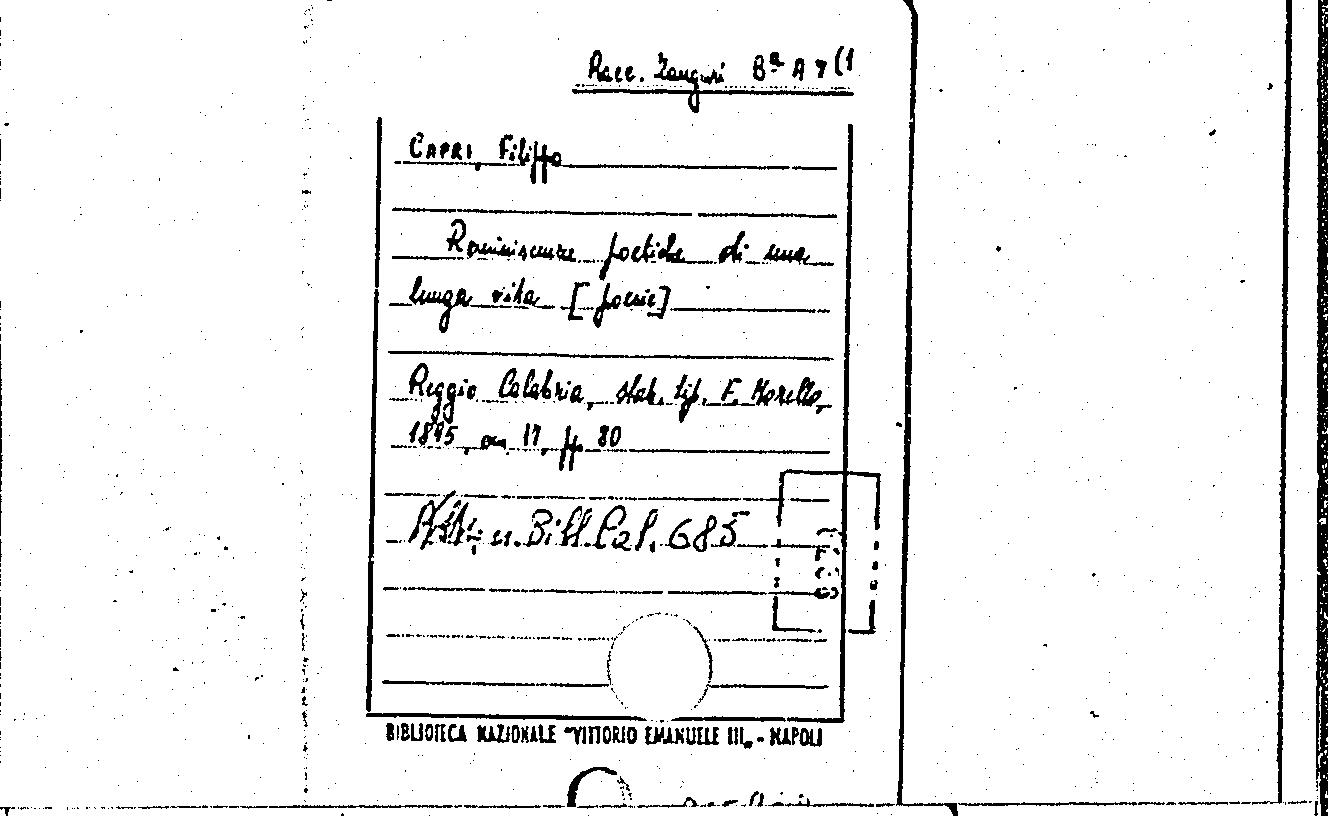 Racc. Zangari Bª A 7 (1
CAPRI, Filippo
Reminiscenze poetiche di una
lunga vita [poesie]
Reggio Calabria, stab. tip. F. Morello,
1895, cm 17, pp 80
n. Bibl. Cal. 685
BIBLIOTECA NAZIONALE "VITTORIO EMANUELE III„ - NAPOLI